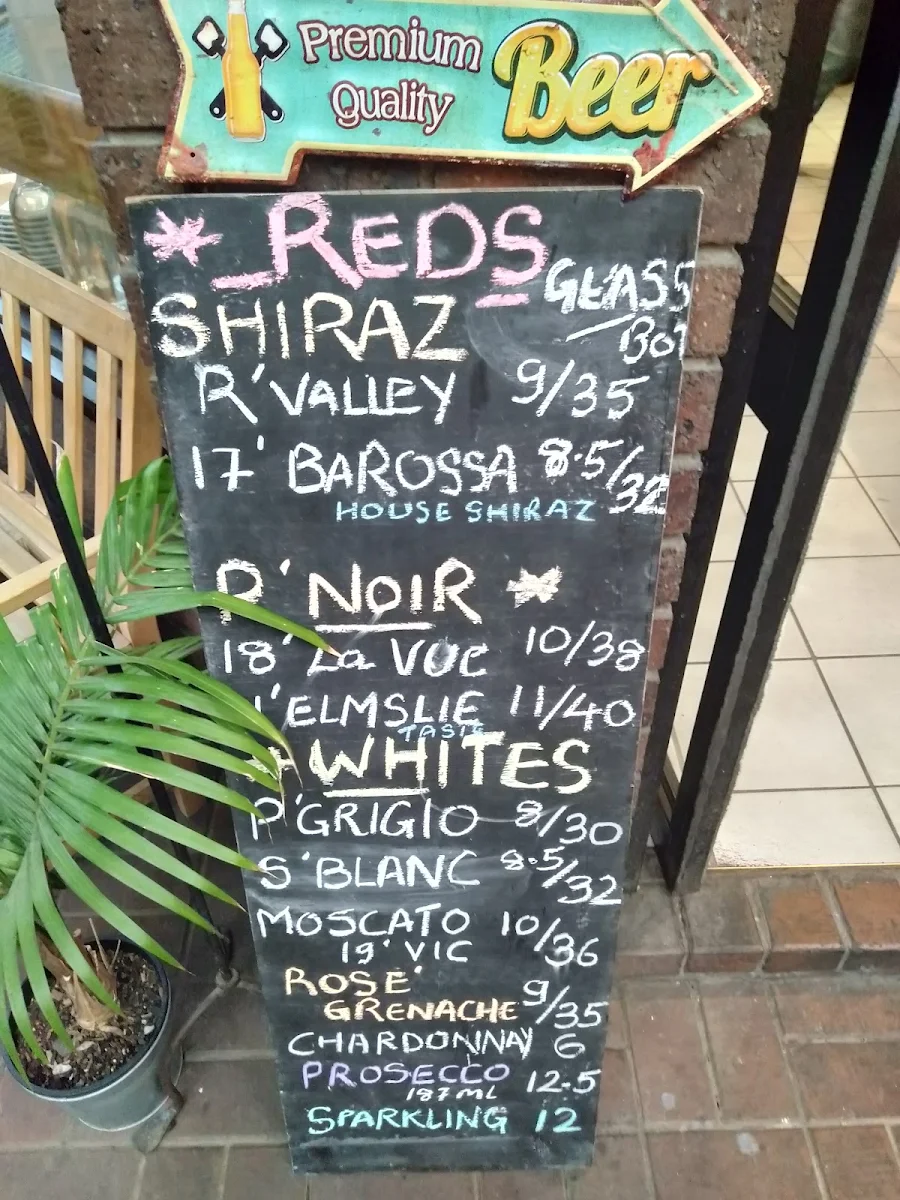 Premium
Quality
Beer
* REDS
GLASS
BOT
SHIRAZ
R'VALLEY 9/35
17' BAROSSA 8.5/32
HOUSE SHIRAZ
P'NOIR *
18' La VUE 10/38
'ELMSLIE 11/40
TASIE
WHITES
P'GRIGIO 8/30
S'BLANC 8.5/32
MOSCATO 10/36
19' VIC
ROSE'
GRENACHE 9/35
CHARDONNAY 6
PROSECCO 12.5
187 ML
SPARKLING 12